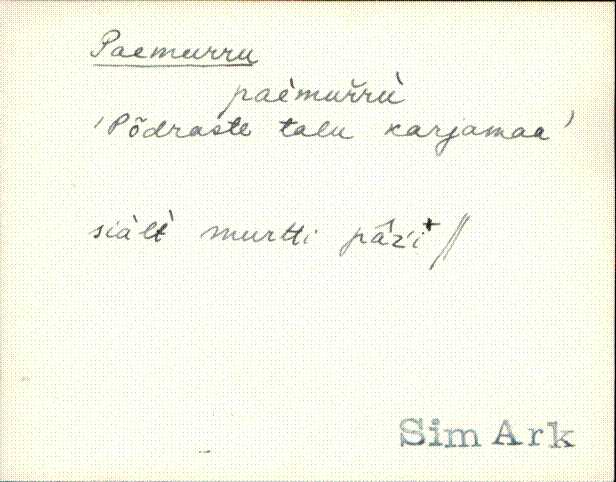 Paemurru
paèmur̆rù
'Põdraste talu karjamaa'
siàlt̀ murtti pâz'i⁺//
Sim Ark